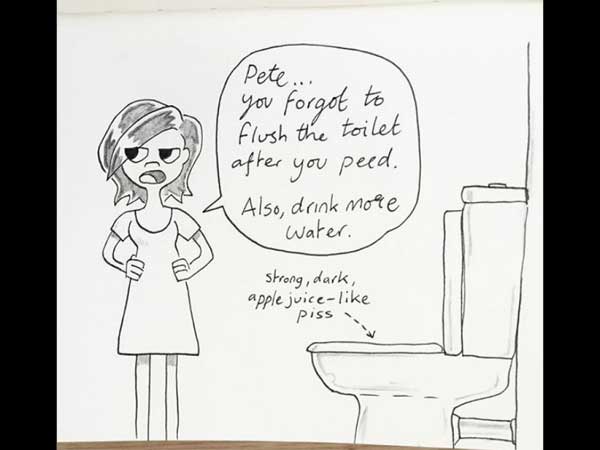 Pete...
you forgot to
flush the toilet
after you peed.
Also, drink more
water.
strong, dark,
apple juice-like
piss